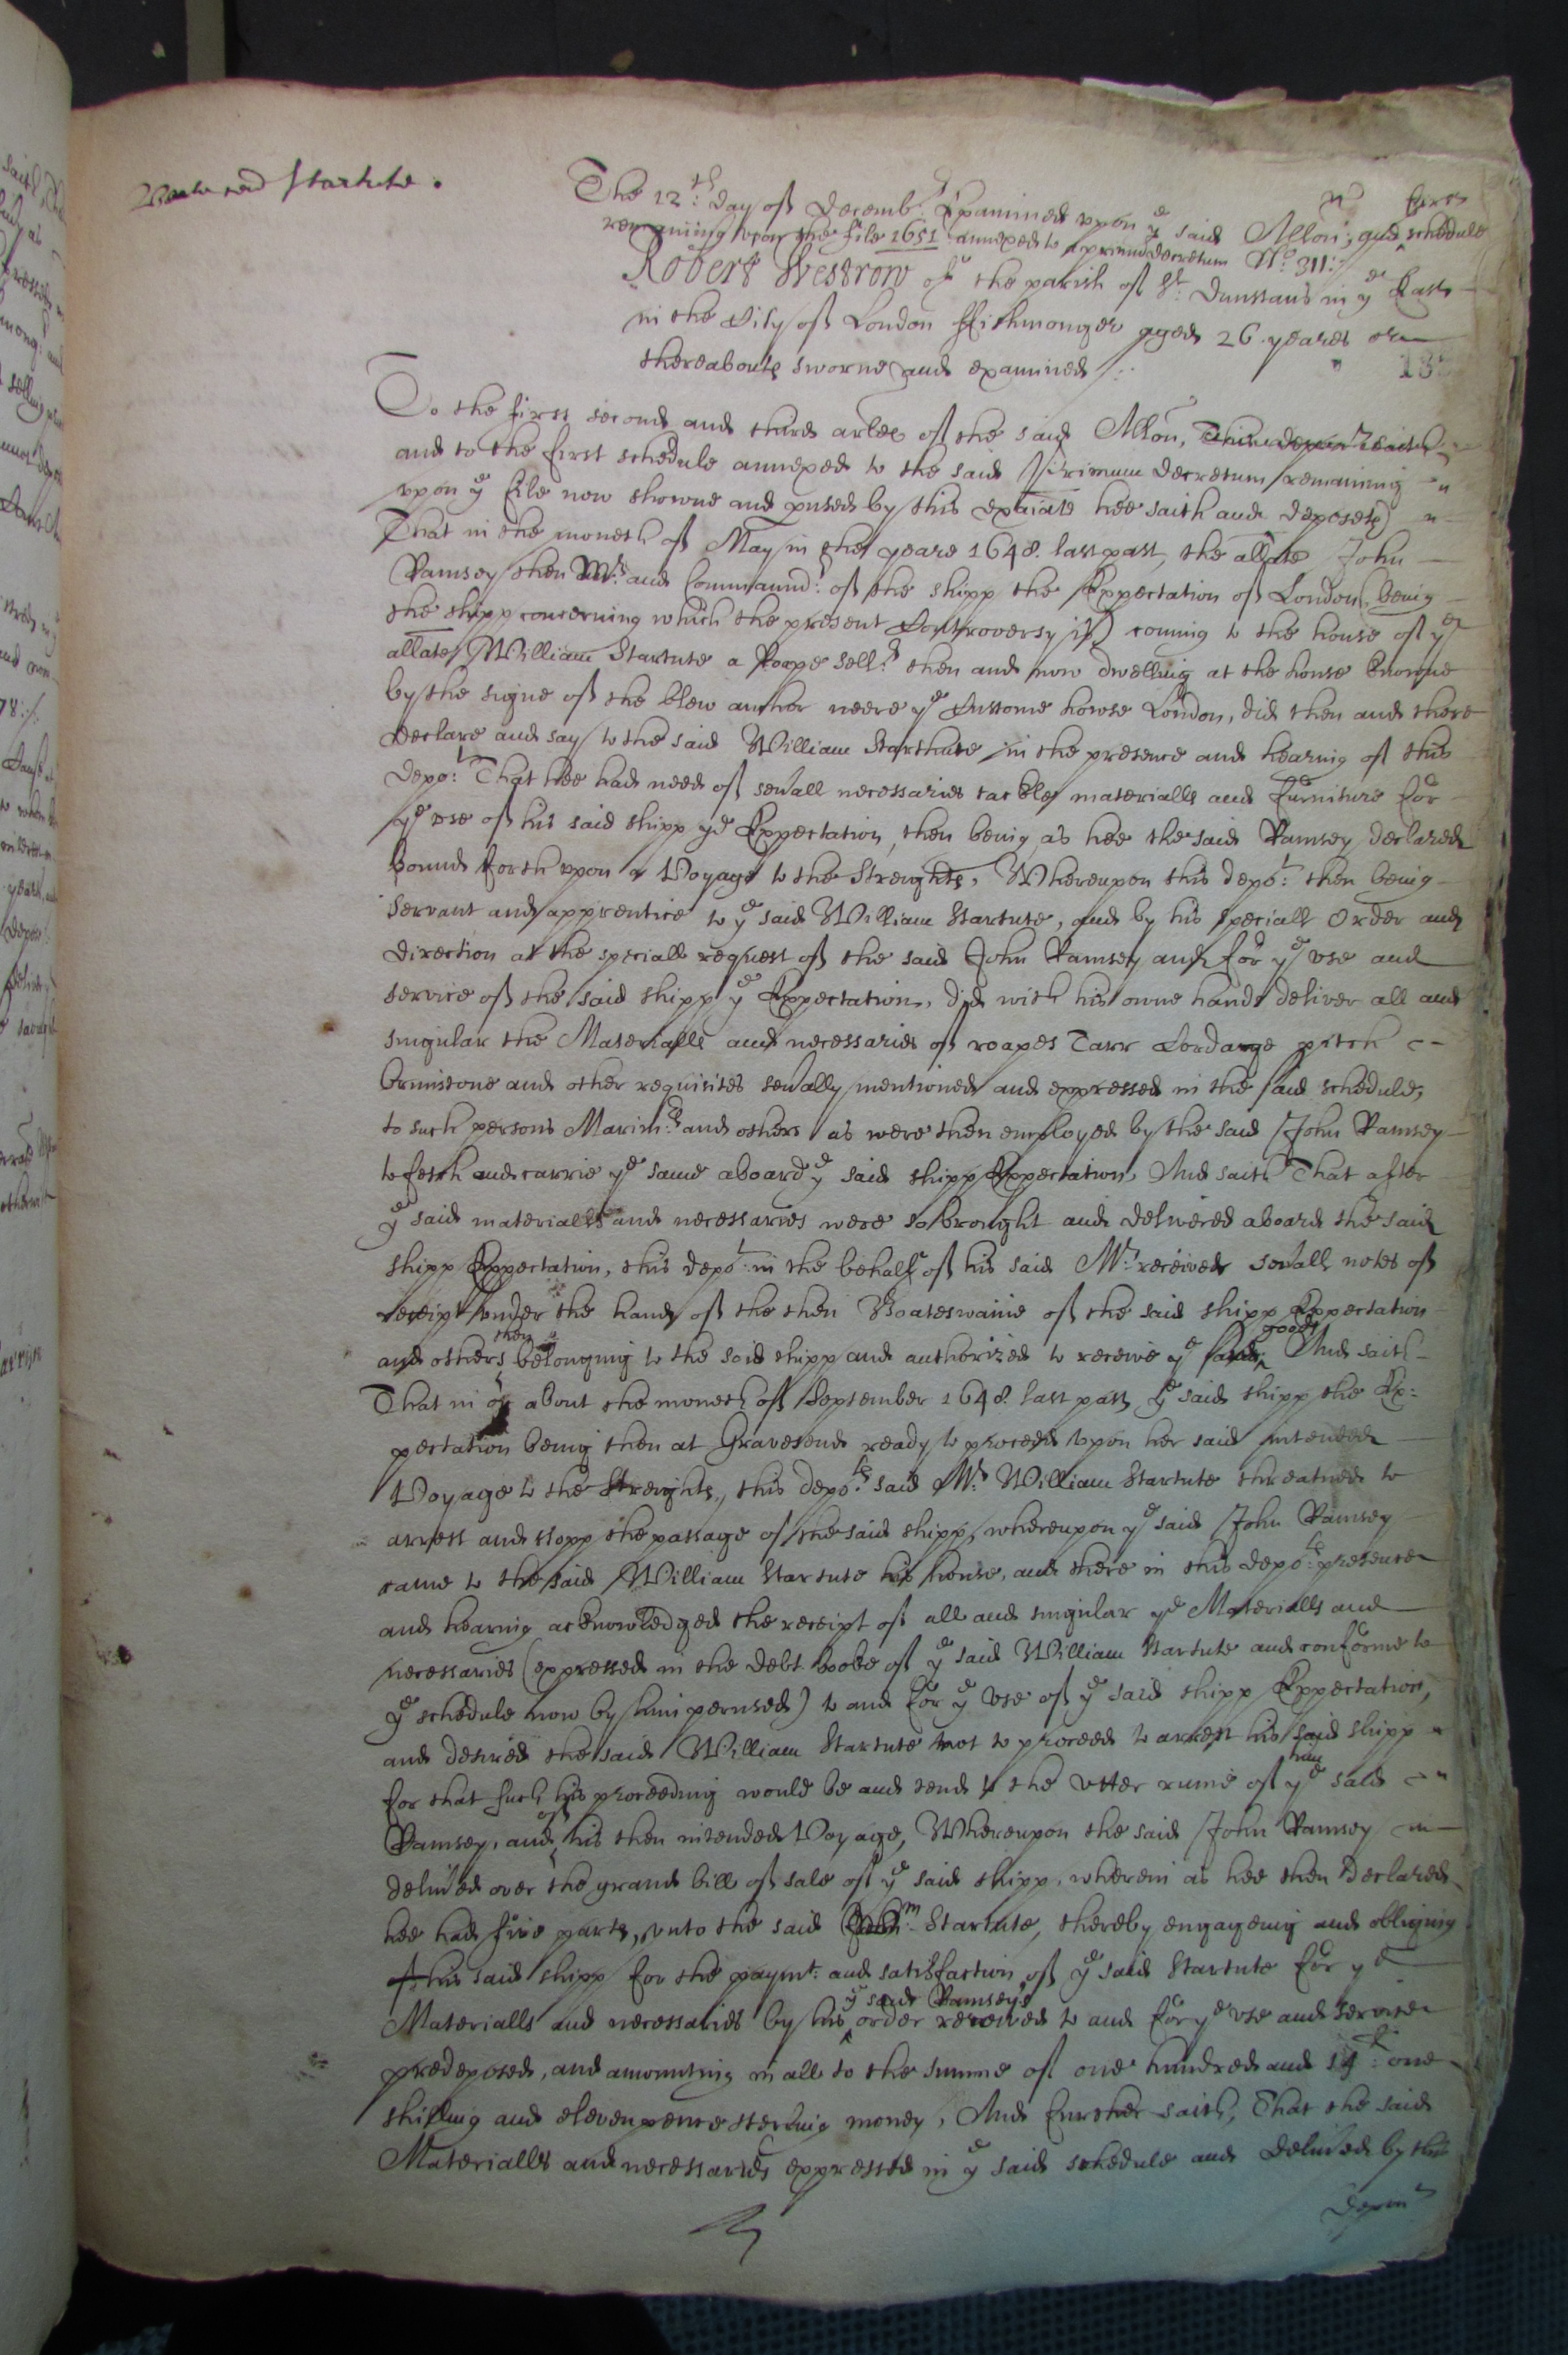 Startute.
The 12th: day of Decemb:r Examined upon ye said Allon, and first schedule
remaining upon the file 1651 annexed to a primum decretum No: 311:
Robert Westrow of the parish of St: Dunstans in ye East
in the Citty of London ffishmonger aged 26 yeares or
thereabouts sworne and examined
To the first second and third arles of the said Allon,
and to the first schedule annexed to the said Primum decretum remaining
vpon ye file now showne and pused by this exaiate hee saith and deposeth
That in the moneth of May in the yeare 1648. last past, the allate John
Ramsey then Mr: and Commaund:r of the shipp the Expectation of London, being
the shipp concerning which the present Controversy is) coming to the house of ye
allate William Startute a Roape sell:r then and now dwelling at the house knowne
by the signe of the blew anchor neere ye Custome howse London, did then and there
declare and say to the said William Startute in the presence and hearing of this
depo:t That hee had need of seuall necessaries tackle materialls and furniture for
ye vse of his said shipp ye Expectation, then being as hee the said Ramsey declared
bound forth vpon a Voyage to the Streights, Whereupon this depo:t then being
servant and apprentice to ye said William Startute, and by his speciall Order and
direction at the speciall request of the said John Ramsey and for ye vse and
service of the said shipp ye Expectation, did with his owne hands deliver all and
singular the Materialls and necessaries of roapes Tarr Cordage pitch
brimstone and other requisites seually mentioned and expressed in the said schedule,
to such persons Marin:rs and others as were then employed by the said John Ramsey
to fetch and carrie ye same aboard ye said shipp Expectation, And saith That after
ye said materialls and necessaries were so brought and delivered aboard the said
shipp Expectation, this depo:t in the behalf of his said Mr: received seuall notes of
receipt under the hands of the then Boateswaine of the said shipp Expectation
and others then belonging to the said shipp and authorized to receive ye said goods And saith
That in or about the moneth of September 1648. last past ye said shipp the Ex:
pectation being then at Gravesend ready to proceed vpon her said intended
Voyage to the Streights, this depo:ts said Mr: William Startute threatned to
arrest and stopp the passage of the said shipp, whereupon ye said John Ramsey
came to the said William Startute his house, and there in this depo:ts presence
and hearing acknowledged the receipt of all and singular ye Materialls and
necessaries (expressed in the debt booke of ye said William Startute and conforme to
ye schedule now by him perused) to and for ye Vse of ye said shipp Expectation,
and desired the said William Startute not to proceed to arrest his said shipp
for that such his proceeding would be and tend to the vtter ruine of him ye said
Ramsey, and of his then intended Voyage, Whereupon the said John Ramsey
deliued over the grand bill of sale of ye said shipp, wherein as hee then declared
hee had five parts, vnto the said Wm: Startute, thereby engageing and obliging
his said shipp for the paymt: and satisfaction of ye said Startute for ye
Materialls and necessaries by his ye said Ramseys order received to and for ye vse and service
predeposed, and amounting in all to the summe of one hundred and 14 li: one
shilling and eleven pence sterling money, And further saith, That the said
Materialls and necessaries expressed in ye said schedule and deliued by this
depont